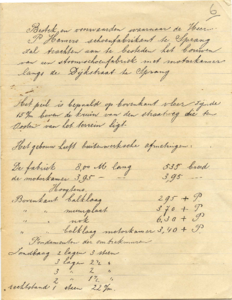 6
Bestek en voorwaarden waarnaar de Heer
P. Hamers schoenfabrikant te Sprang
zal trachten aan te besteden het bouwen
van en stoomschoenfabriek met motorkamer
langs de Dijkstraat te Sprang
Het peil is bepaald op bovenkant vloer zijnde
15 cM boven de kruin van den straatweg die ten
Oosten van het terrein ligt.
Het gebouw heeft buitenwerksche afmetingen:
De fabriek 8,00 M lang 5.35 breed
de motorkamer 3,95 - - 3,95 -
Hoogten
Bovenkant balklaag 2.95 + P
" " muurplaat 3.70 + P
" " nok 6,50 + P
" " balklaag motorkamer 3,40 + P
Fundamenten der buitenmuren
2 lagen 3 steen
3 lagen 2½ "
3 " 2 "
2 " 1½ "
1 steen 22 cM.